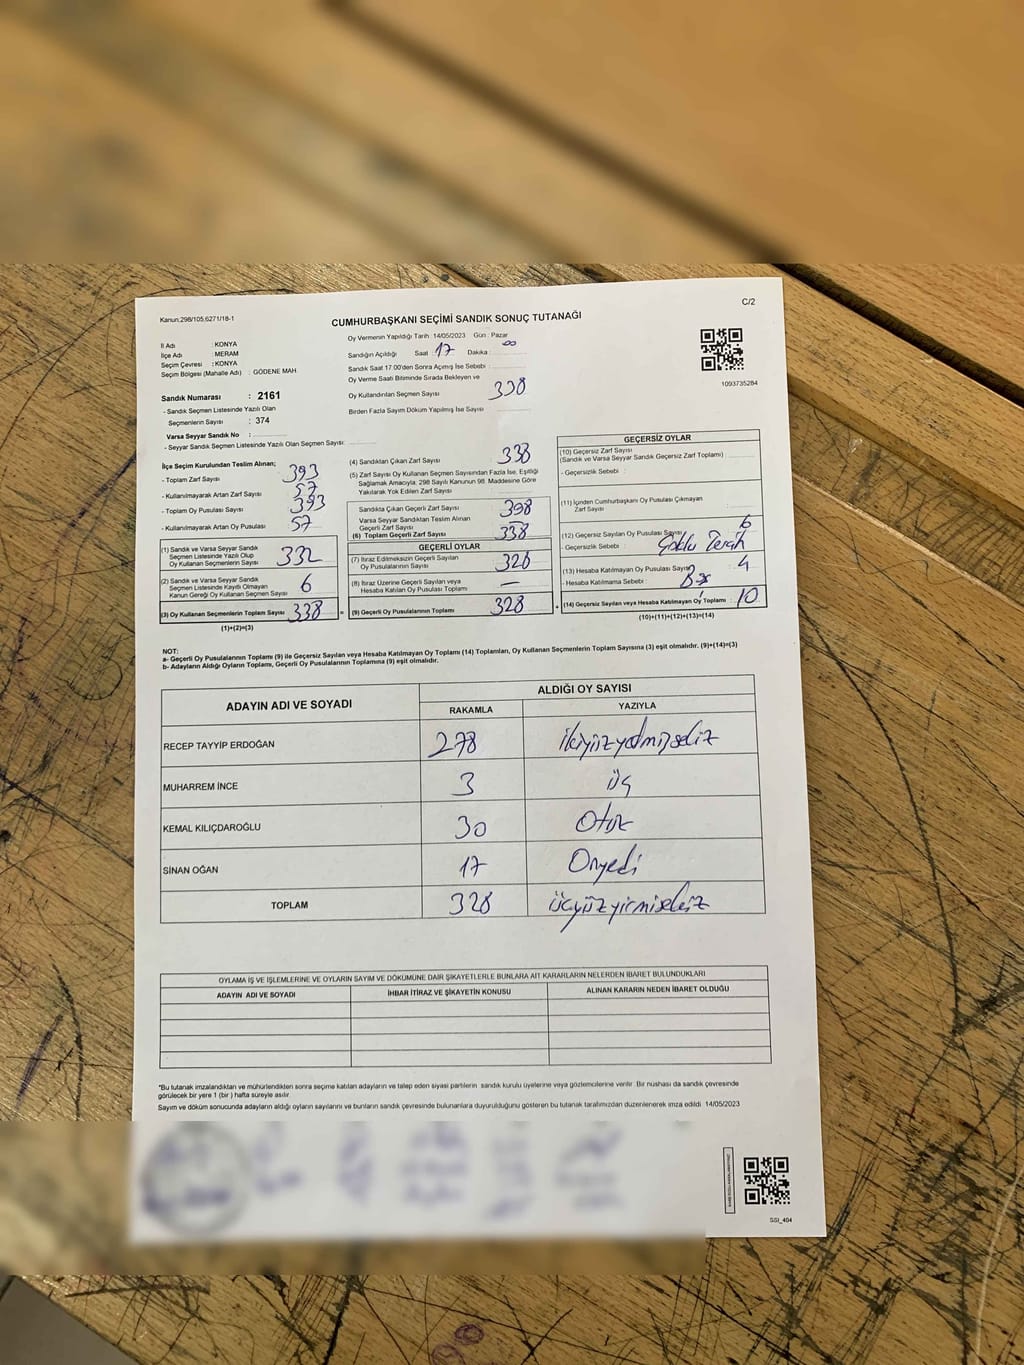 C/2
Kanun:298/105,6271/18-1
CUMHURBAŞKANI SEÇİMİ SANDIK SONUÇ TUTANAĞI
İl Adı : KONYA
İlçe Adı : MERAM
Seçim Çevresi : KONYA
Seçim Bölgesi (Mahalle Adı) : GÖDENE MAH
Sandık Numarası : 2161
- Sandık Seçmen Listesinde Yazılı Olan
Seçmenlerin Sayısı : 374
Varsa Seyyar Sandık No :
- Seyyar Sandık Seçmen Listesinde Yazılı Olan Seçmen Sayısı:
Oy Vermenin Yapıldığı Tarih : 14/05/2023 Gün : Pazar
Sandığın Açıldığı Saat : 17 Dakika : 00
Sandık Saat 17.00'den Sonra Açılmış İse Sebebi :
Oy Verme Saati Bitiminde Sırada Bekleyen ve
Oy Kullandırılan Seçmen Sayısı 338
Birden Fazla Sayım Döküm Yapılmış İse Sayısı
1093735284
İlçe Seçim Kurulundan Teslim Alınan;
- Toplam Zarf Sayısı 393
- Kullanılmayarak Artan Zarf Sayısı 57
- Toplam Oy Pusulası Sayısı 393
- Kullanılmayarak Artan Oy Pusulası 57
(1) Sandık ve Varsa Seyyar Sandık
Seçmen Listesinde Yazılı Olup
Oy Kullanan Seçmenlerin Sayısı 332
(2) Sandık ve Varsa Seyyar Sandık
Seçmen Listesinde Kayıtlı Olmayan
Kanun Gereği Oy Kullanan Seçmen Sayısı 6
(3) Oy Kullanan Seçmenlerin Toplam Sayısı 338 =
(1)+(2)=(3)
(4) Sandıktan Çıkan Zarf Sayısı 338
(5) Zarf Sayısı Oy Kullanan Seçmen Sayısından Fazla İse, Eşitliği
Sağlamak Amacıyla, 298 Sayılı Kanunun 98. Maddesine Göre
Yakılarak Yok Edilen Zarf Sayısı
Sandıkta Çıkan Geçerli Zarf Sayısı 398
Varsa Seyyar Sandıktan Teslim Alınan
Geçerli Zarf Sayısı —
(6) Toplam Geçerli Zarf Sayısı 338
GEÇERLİ OYLAR
(7) İtiraz Edilmeksizin Geçerli Sayılan
Oy Pusulalarının Sayısı 328
(8) İtiraz Üzerine Geçerli Sayılan veya
Hesaba Katılan Oy Pusulası Toplamı —
(9) Geçerli Oy Pusulalarının Toplamı 328 +
GEÇERSİZ OYLAR
(10) Geçersiz Zarf Sayısı
(Sandık ve Varsa Seyyar Sandık Geçersiz Zarf Toplamı) :
- Geçersizlik Sebebi :
(11) İçinden Cumhurbaşkanı Oy Pusulası Çıkmayan
Zarf Sayısı :
(12) Geçersiz Sayılan Oy Pusulası Sayısı : 6
- Geçersizlik Sebebi : Çoklu Tercih
(13) Hesaba Katılmayan Oy Pusulası Sayısı : 4
- Hesaba Katılmama Sebebi : Boş
(14) Geçersiz Sayılan veya Hesaba Katılmayan Oy Toplamı : 10
(10)+(11)+(12)+(13)=(14)
NOT:
a- Geçerli Oy Pusulalarının Toplamı (9) ile Geçersiz Sayılan veya Hesaba Katılmayan Oy Toplamı (14) Toplamları, Oy Kullanan Seçmenlerin Toplam Sayısına (3) eşit olmalıdır. (9)+(14)=(3)
b- Adayların Aldığı Oyların Toplamı, Geçerli Oy Pusulalarının Toplamına (9) eşit olmalıdır.
ADAYIN ADI VE SOYADI ALDIĞI OY SAYISI
RAKAMLA YAZIYLA
RECEP TAYYİP ERDOĞAN 278 ikiyüzyetmişsekiz
MUHARREM İNCE 3 üç
KEMAL KILIÇDAROĞLU 30 Otuz
SİNAN OĞAN 17 Onyedi
TOPLAM 328 üçyüzyirmisekiz
OYLAMA İŞ VE İŞLEMLERİNE VE OYLARIN SAYIM VE DÖKÜMÜNE DAİR ŞİKAYETLERLE BUNLARA AİT KARARLARIN NELERDEN İBARET BULUNDUKLARI
ADAYIN ADI VE SOYADI İHBAR İTİRAZ VE ŞİKAYETİN KONUSU ALINAN KARARIN NEDEN İBARET OLDUĞU
*Bu tutanak imzalandıktan ve mühürlendikten sonra seçime katılan adayların ve talep eden siyasi partilerin sandık kurulu üyelerine veya gözlemcilerine verilir. Bir nüshası da sandık çevresinde
görülecek bir yere 1 (bir ) hafta süreyle asılır.
Sayım ve döküm sonucunda adayların aldığı oyların sayılarını ve bunların sandık çevresinde bulunanlara duyurulduğunu gösteren bu tutanak tarafımızdan düzenlenerek imza edildi. 14/05/2023
SSI_404